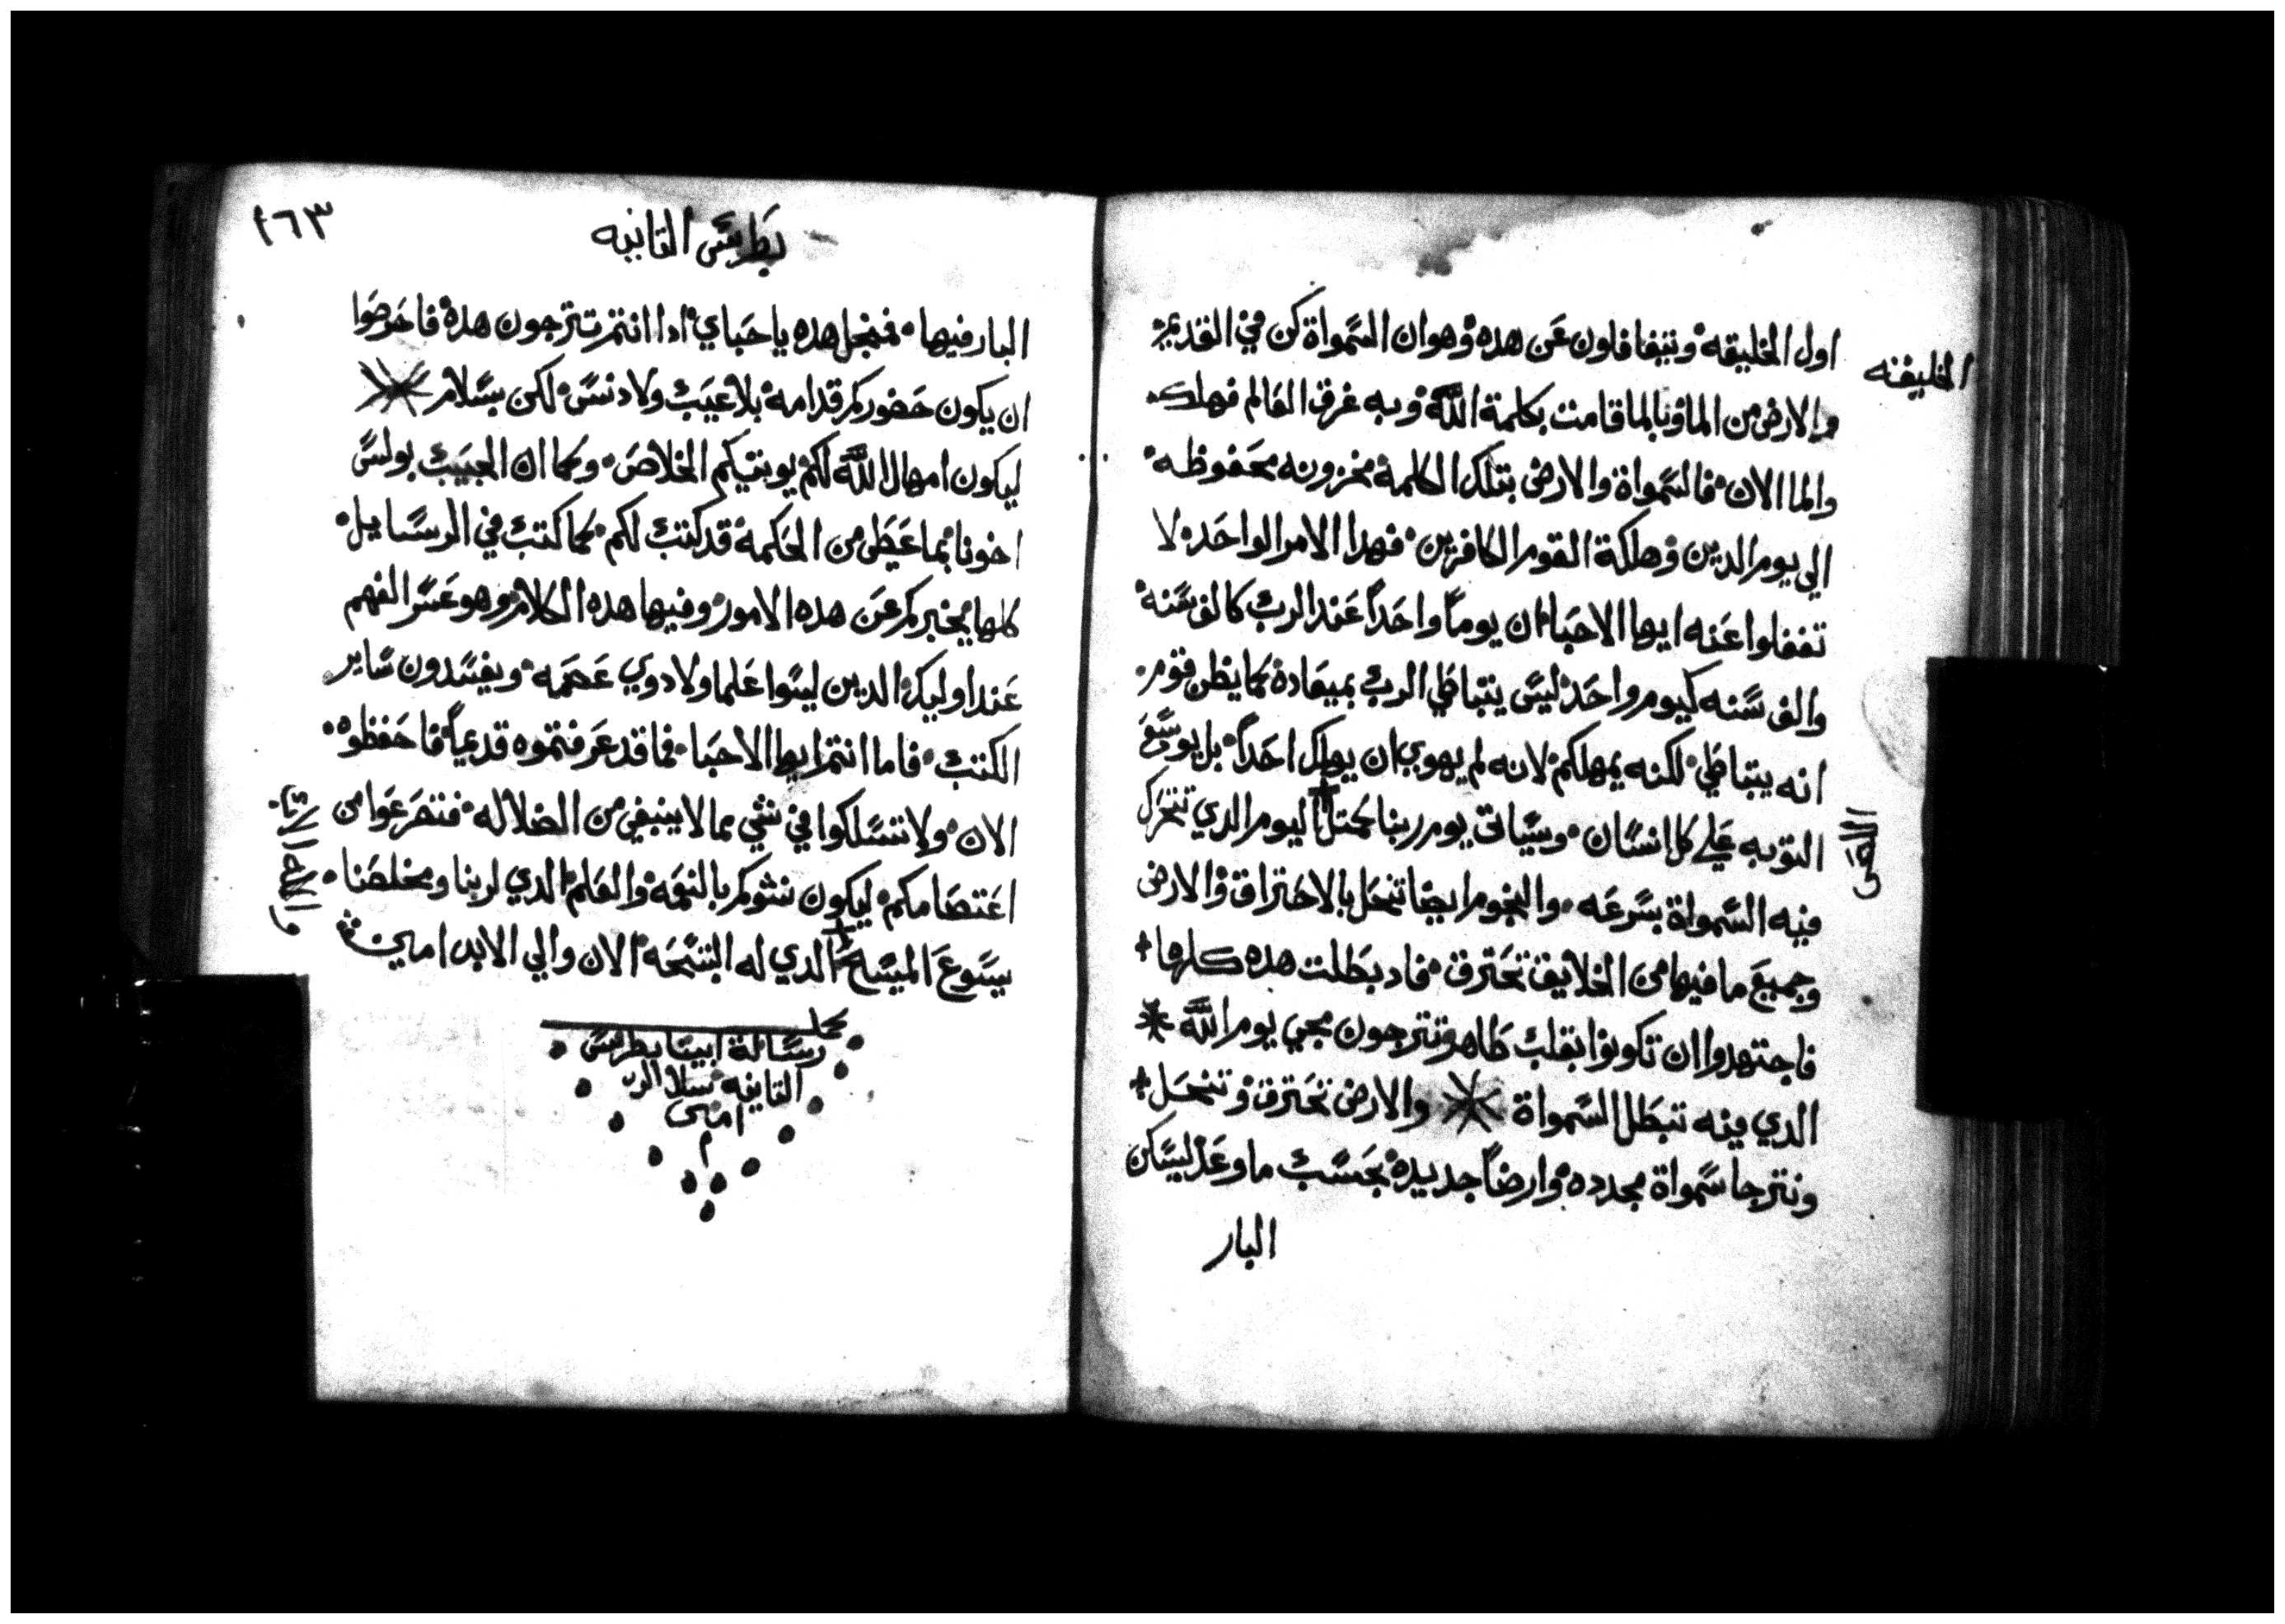 اول الخليقه وتيغافلون عن هده وهو ان السمواة كن في القديم
والارض من الما وبالما قامت بكلمة الله وبه غرق العالم فهلك
والما الان فالسمواة والارض بتلك الكلمة مخزونه محفوظه
الي يوم الدين وهلكة القوم الكافرين فهدا الامر الواحد لا
تغفلوا عنه ايها الاحبا ان يوماً واحداً عند الرب كالف سنة
والف سنه كيوم واحد ليس يتباطي الرب بميعادة كما يظن قوم
انه يتباطي لكنه يمهلكم لانه لم يهوي ان يهلك احداً بل يوسع
التوبه علي كل انسان وسياتي يوم ربنا كمتل اليوم الدي تتحرك
فيه السمواة بسرعه والنجوم ايضا تنحل بالاحتراق والارض
وجميع ما فيها من الخلايق تحترق فاد بطلت هده كلها
فاجتهدوا ان تكونوا بقلب طاهر وتترجون مجي يوم الله
الدي فيه تبطل السمواة والارض تحترق وتنحل
ونترجا سمواة مجدده وارضاً جديدة بحسب ما وعد ليسكن
البار
الخليقه
بطرس التانيه
١٦٣
البار فيها فمنجل هده يا حباي ادا انتم تترجون هده فاحرصوا
ان يكون حضوركم قدامه بلا عيب ولا دنس لكن بسلام
ليكون امهال الله لكم يوبتيكم الخلاص وكما ان الحبيب بولس
اخونا بما عطي من الحكمة قد كتب لكم كما كتب في الرسايل
كلها يخبركم عن هده الامور وفيها هده الكلام وهو عسر الفهم
عند اوليك الدين ليسوا علما ولا دوي عصمه ويفسدون ساير
الكتب فاما انتم ايها الاحبا فما قد عرفتموه قديماً فاحفظوه
الان ولا تتسلكوا في شي مما لا ينبغي من الضلاله فتضرعوا من
اعتصامكم ليكون نشوكم بالنعمه والعلم الدي لربنا ومخلصنا
يسوع المسيح الدي له التسبحه الان والي الابد امين
كمل
رسالة ابينا بطرس
التانيه بسلام الرب
امين
م